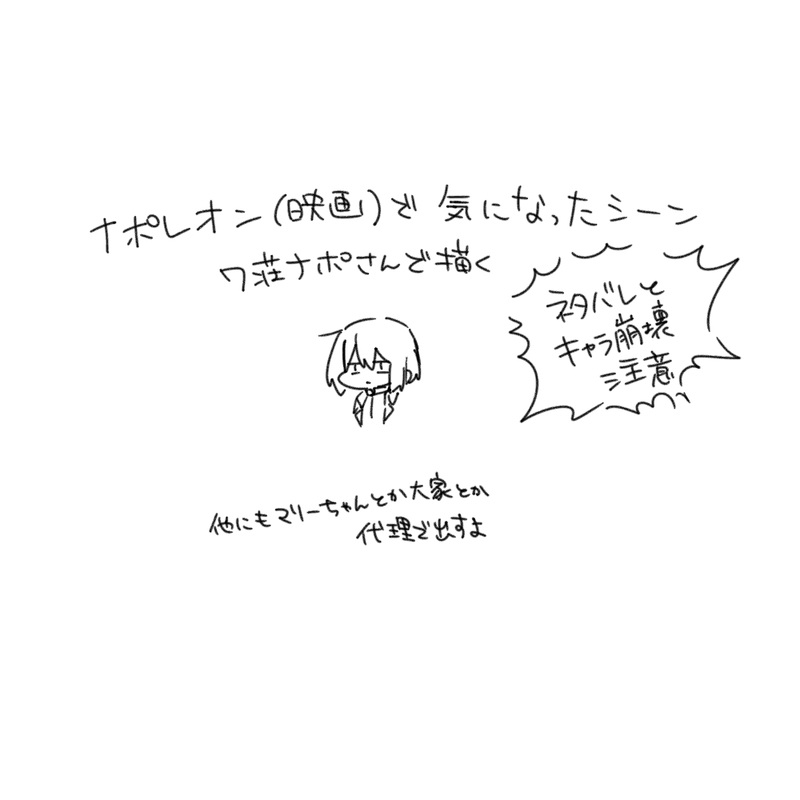 ナポレオン(映画)で 気になったシーン
ワ荘ナポさんで描く
ネタバレと
キャラ崩壊
注意
他にもマリーちゃんとか大家とか
代理で出すよ